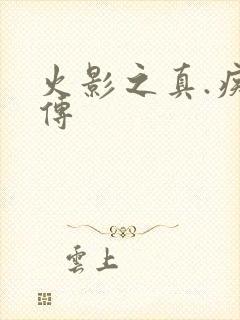 火影之真.疾
傳
雲上